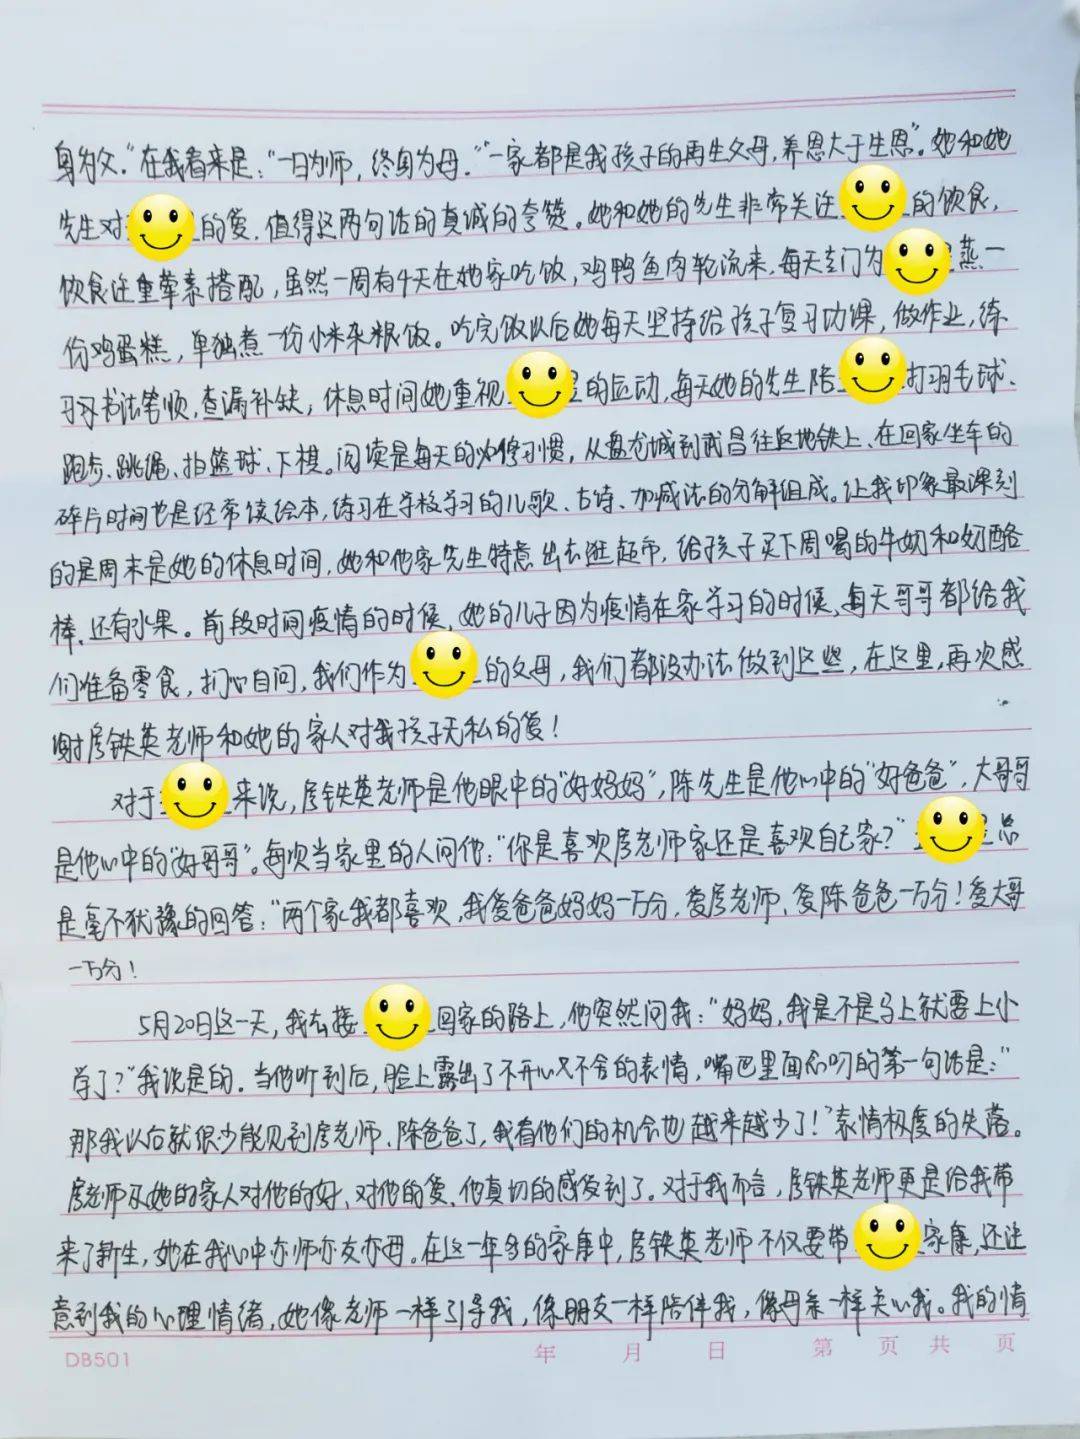 身为父."在我看来是:"一日为师,终身为母.""一家都是我孩子的再生父母,养恩大于生恩"。她和她
先生对的爱,值得这两句话的真诚的夸赞。她和她的先生非常关注的饮食,
饮食注重荤素搭配,虽然一周有4天在她家吃饭,鸡鸭鱼肉轮流来,每天专门为蒸一
份鸡蛋糕,单独煮一份小米杂粮饭。吃完饭以后她每天坚持给孩子复习功课,做作业,练
习书法笔顺,查漏补缺,休息时间她重视的运动,每天她的先生陪打羽毛球、
跑步、跳绳、拍篮球、下棋。阅读是每天的必修习惯,从盘龙城到武昌往返地铁上、在回家坐车的
碎片时间也是经常读绘本,练习在学校学习的儿歌、古诗、加减法的分解组成。让我印象最深刻
的是周末是她的休息时间,她和他家先生特意出去逛超市,给孩子买下周喝的牛奶和奶酪
棒、还有水果。前段时间疫情的时候,她的儿子因为疫情在家学习的时候,每天哥哥都给我
们准备零食,扪心自问,我们作为的父母,我们都没办法做到这些,在这里,再次感
谢房铁英老师和她的家人对我孩子无私的爱!
对于来说,房铁英老师是他眼中的"好妈妈",陈先生是他心中的"好爸爸",大哥哥
是他心中的"好哥哥"。每次当家里的人问他:"你是喜欢房老师家还是喜欢自己家?"总
是毫不犹豫的回答:"两个家我都喜欢,我爱爸爸妈妈一万分,爱房老师、爱陈爸爸一万分!爱大哥
一万分!
5月20日这一天,我去接回家的路上,他突然问我:"妈妈,我是不是马上就要上小
学了?"我说是的.当他听到后,脸上露出了不开心又不舍的表情,嘴巴里面念叨的第一句话是:"
那我以后就很少能见到房老师、陈爸爸了,我看他们的机会也越来越少了!"表情极度的失落。
房老师及她的家人对他的好、对他的爱、他真切的感受到了。对于我而言,房铁英老师更是给我带
来了新生,她在我心中亦师亦友亦母。在这一年多的家康中,房铁英老师不仅要带家康,还注
意到我的心理情绪,她像老师一样引导我,像朋友一样陪伴我,像母亲一样关心我。我的情
DB501 年 月 日 第 页 共 页